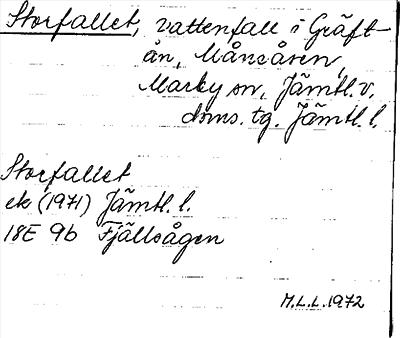 Storfallet, vattenfall i Gräft-
ån, Månsåsen,
Marby sn, Jämtl. v.
doms. tg. Jämtl. l.
Storfallet
ek (1971) Jämtl. l.
18E 9b Fjällsågen
M.L.L. 1972